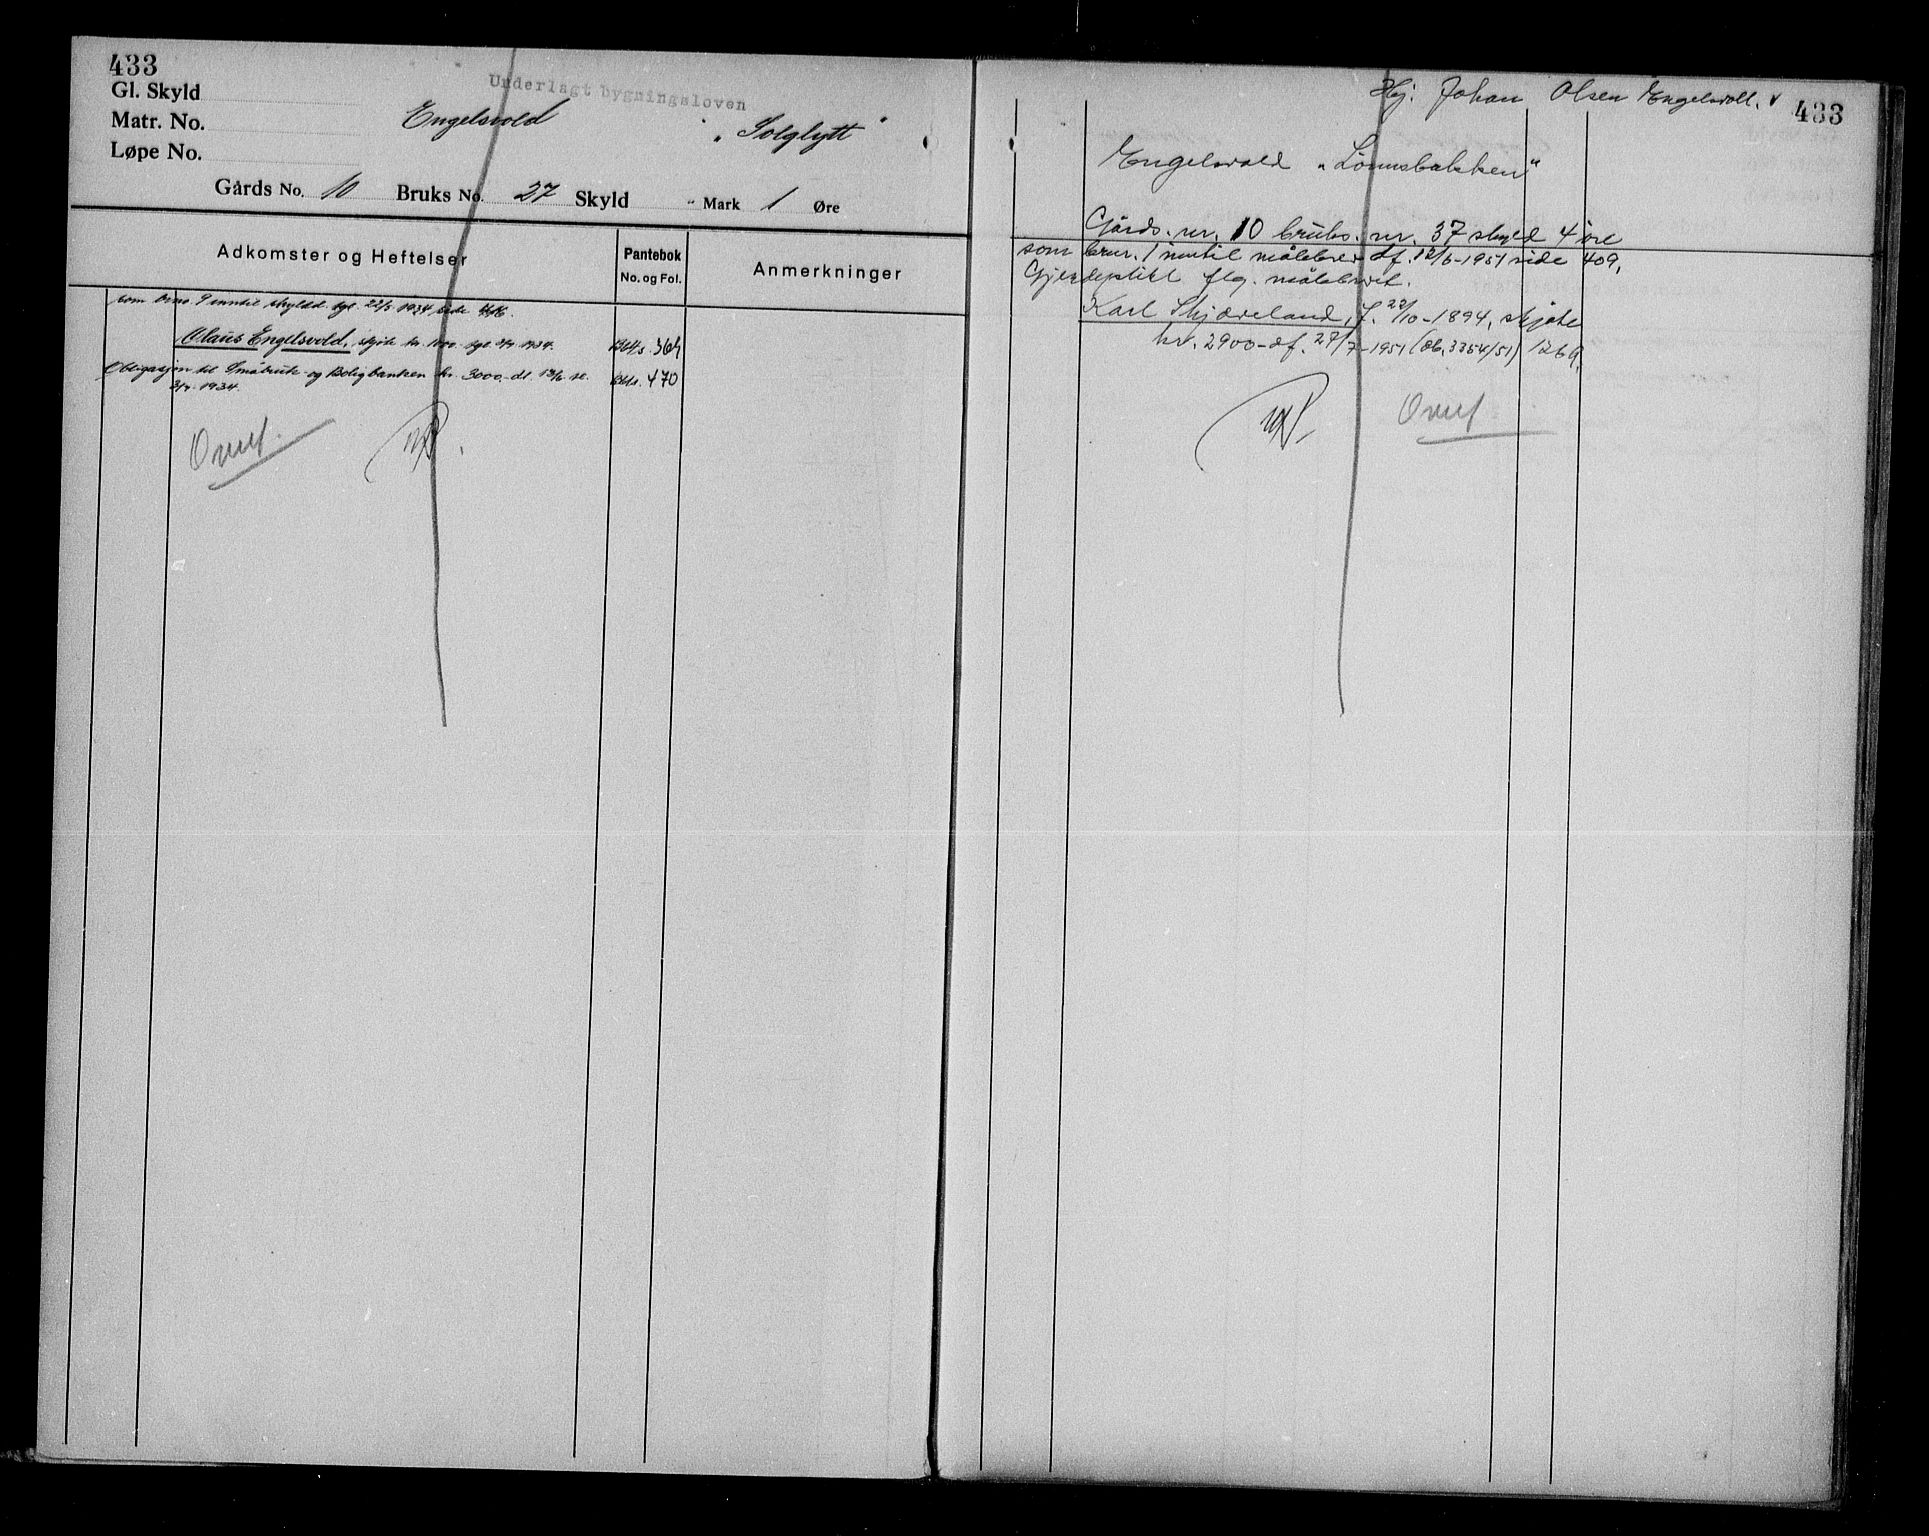 433
Gl. Skyld
Underlagt bygningsloven
Matr. No.
Engelsvold „Solglytt"
Løpe No.
Gårds No. 10 Bruks No. 27 Skyld " Mark 1 Øre
Adkomster og Heftelser
Pantebok
No. og Fol.
Anmerkninger
som brno. 1 inntil skyldd. tgl. 22/5 1934 side
Olaus Engelsvold, skjøte kr. 1000 tgl. 3/7 1934. 364
Obligasjon til Småbruk- og Boligbanken kr. 3000.- dt. 13/6 se. 470
3/7. 1934.
Overf.
Hj. Johan Olsen Engelsvoll. v
433
Engelsvold „Lönnsbakken"
Gårds. nr. 10 bruks. nr. 37 skyld 4 öre
som brnr. 1 inntil målebrev df. 12/6-1951 side 409.
Gjerdeplikt flg. målebrevet.
Karl Skjæveland, f. 22/10-1894, skjøte
kr. 2900- df. 27/7-1951 (db. 3354/51) 1269.
Overf